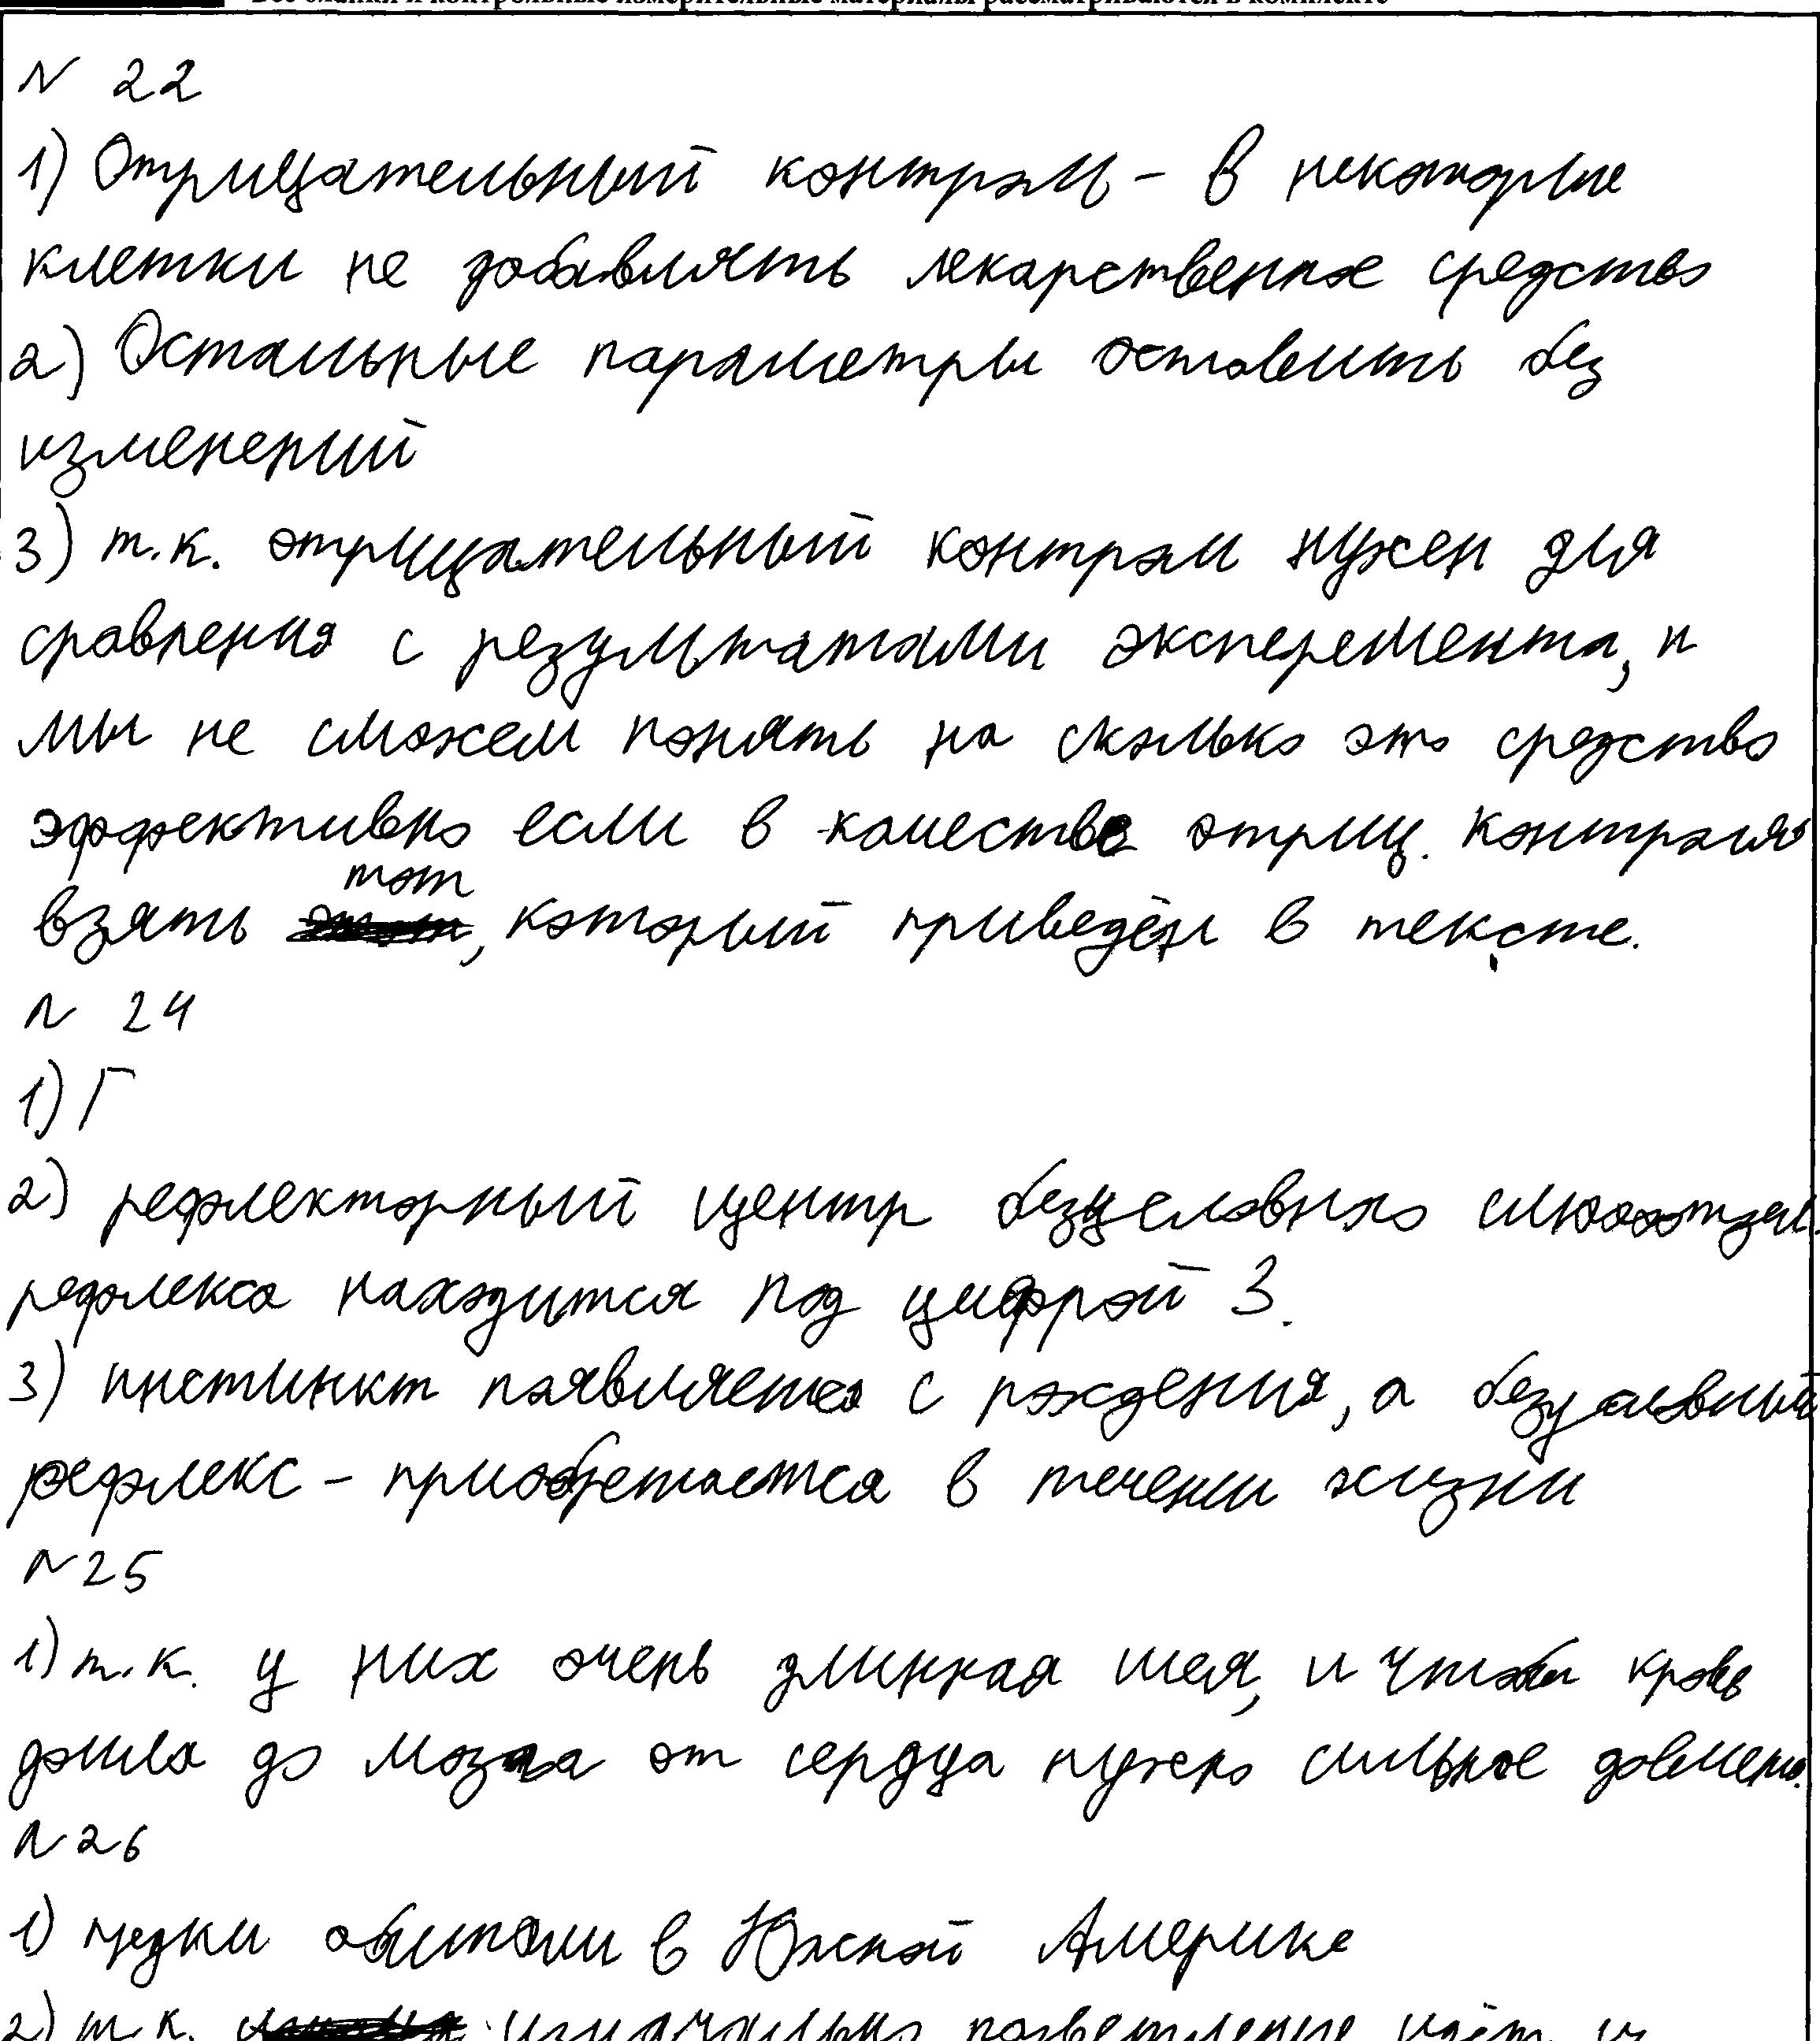 Все бланки и контрольные измерительные материалы рассматриваются в комплекте
N 22
1) Отрицательный контроль - в некоторые
клетки не добавлять лекарственное средство
2) Остальные параметры оставить без
изменений
3) т.к. отрицательный контроль нужен для
сравнения с результатами эксперемента, и
мы не сможем понять на сколько это средство
эффективно если в качестве отриц. контроля
взять тот, который приведён в тексте.
N 24
1) Г
2) рефлекторный центр
рефлекса находится под цифрой 3.
3) инстинкт появляется с рождения, а безусловный
рефлекс - приобретается в течении жизни
N 25
1) т.к. у них очень длинная шея, и чтобы кровь
дошла до мозга от сердца нужно сильное
N 26
1) предки обитали в Южной Америке
2) т.к. изначально идёт и